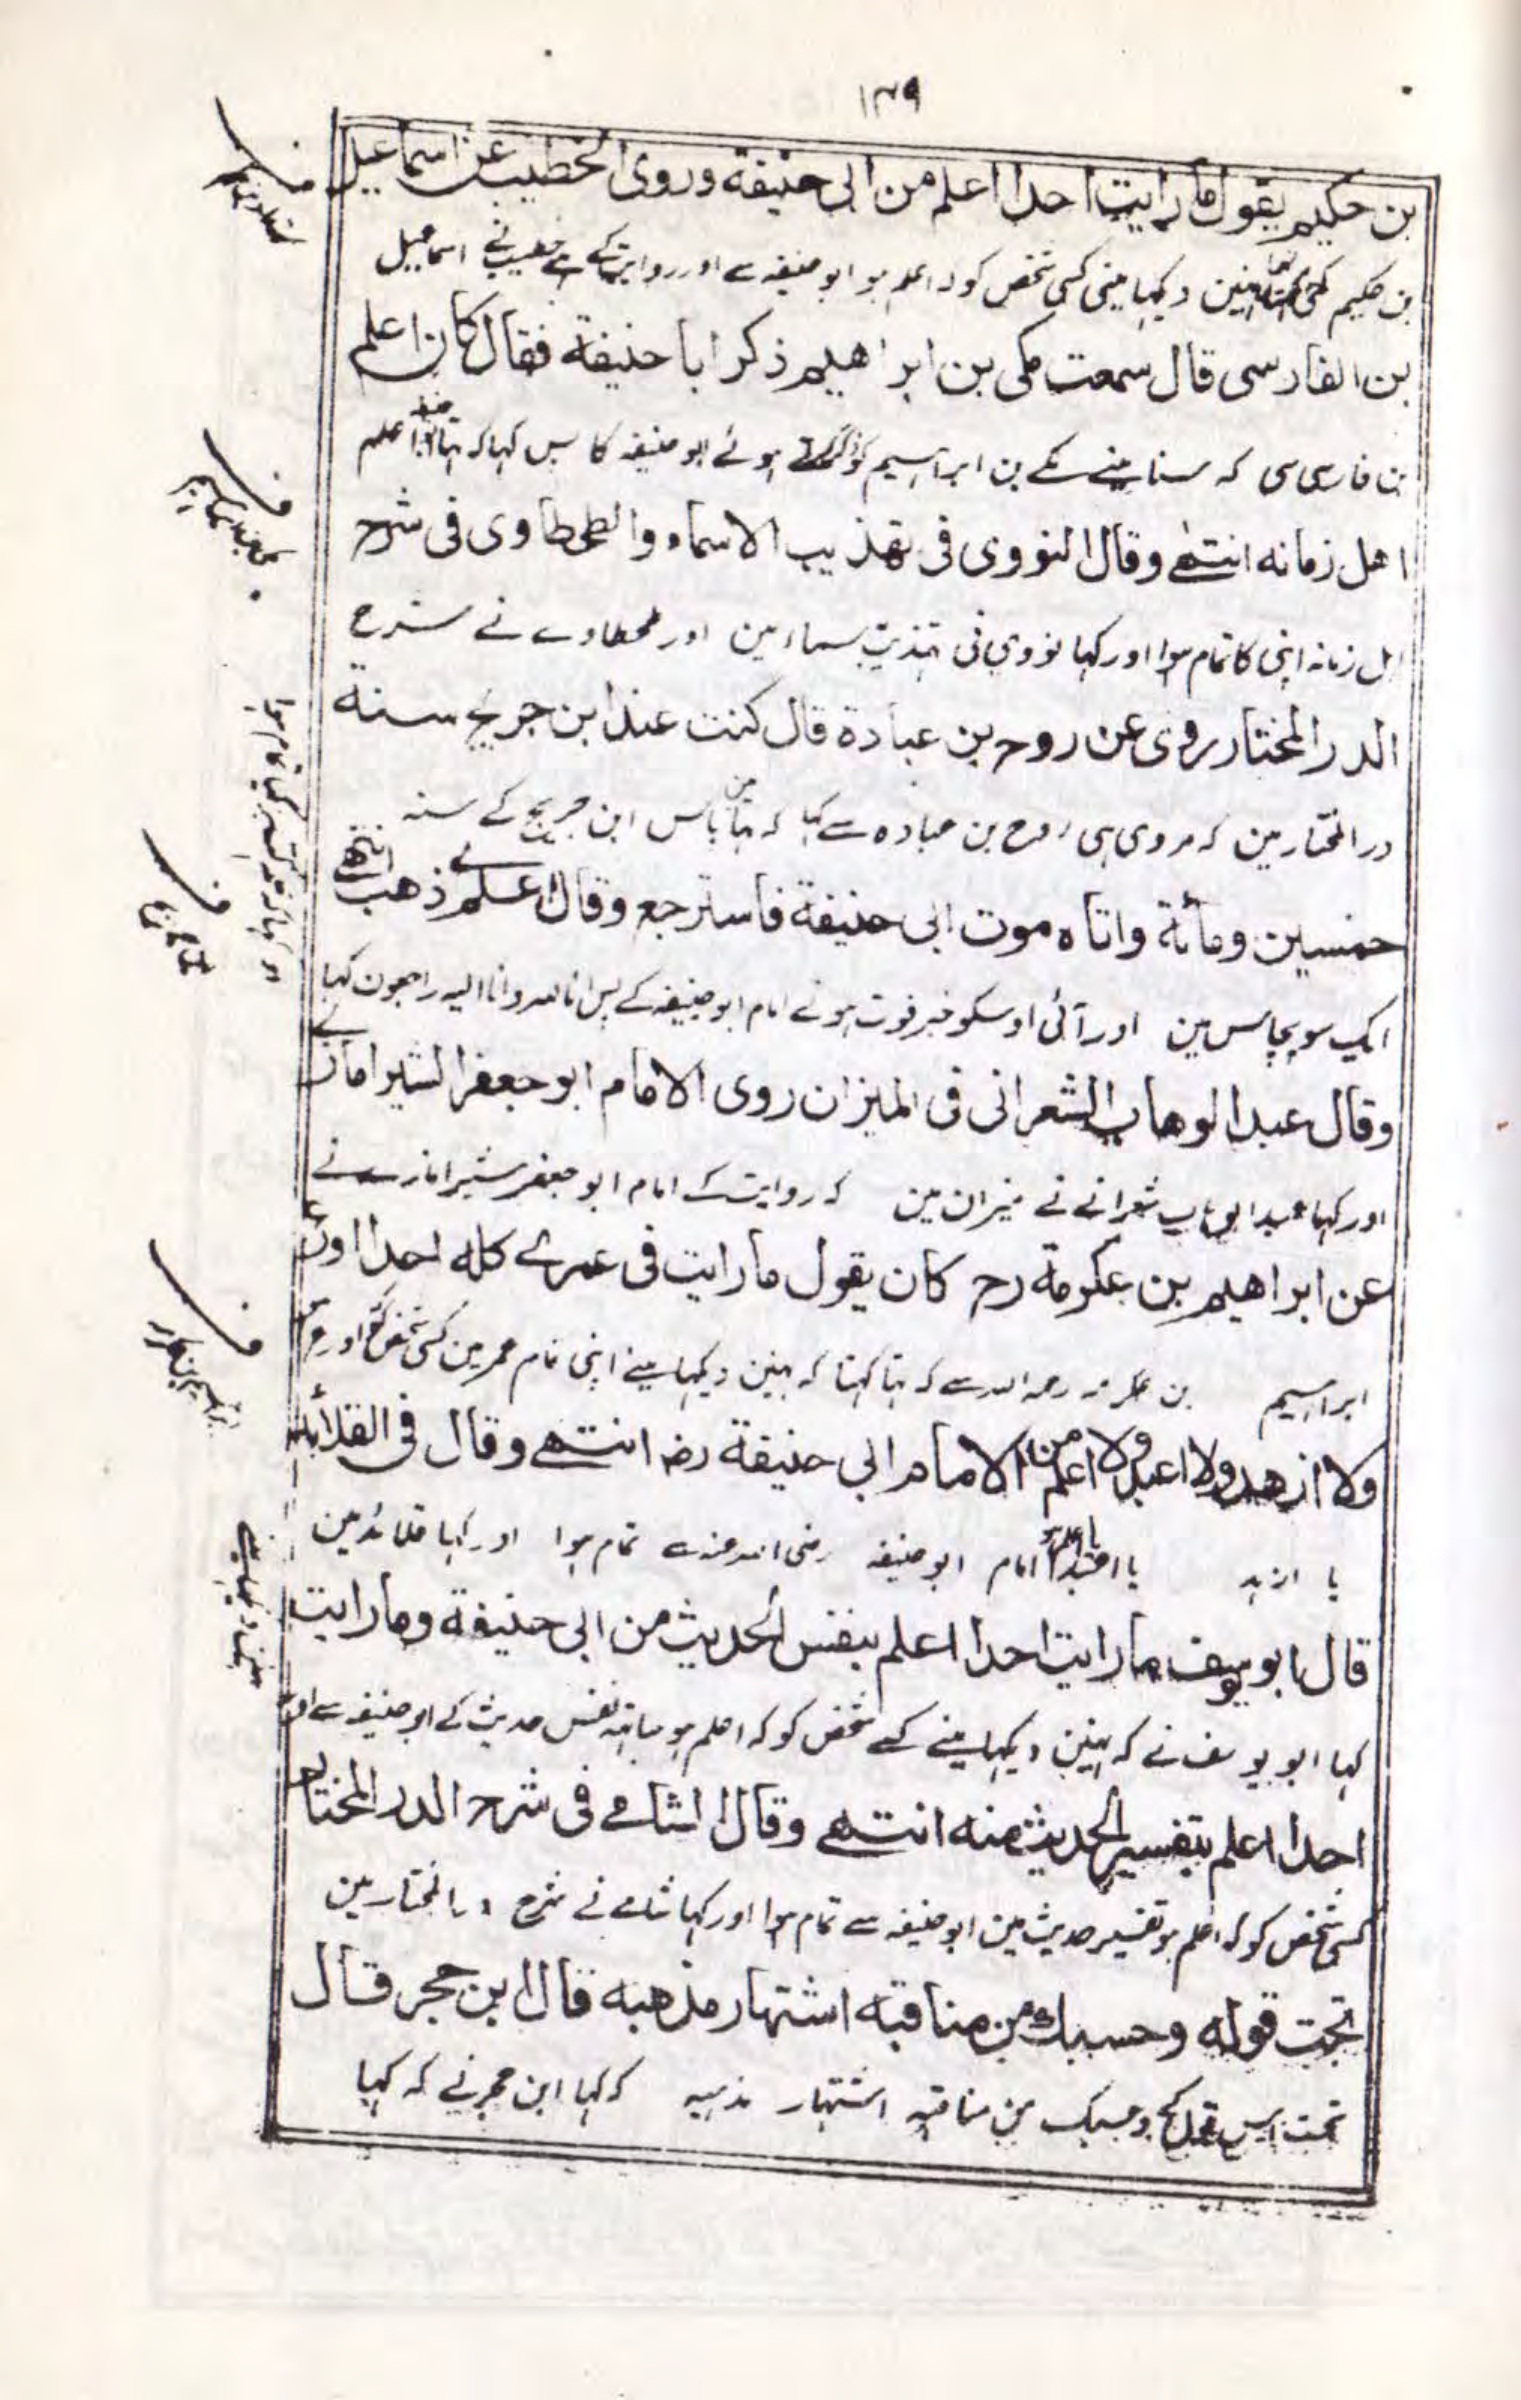 ۱۳۹
بن حكيم يقول ما رايت احدا اعلم من ابى حنيفة وروى الخطيب عن اسماعيل
بن حکیم کہ نہین دیکہا مینی کسی شخص کو کہ اعلم ہو ابو حنیفہ سے اور روایت کے ہے خطیب نے اسماعیل
بن الفارسى قال سمعت مكى بن ابراهيم ذكر ابا حنيفة فقال كان اعلم
بن فارسی سی کہ سنا مینے مکے بن ابراہیم کو ذکر کرتے ہوئے ابو حنیفہ کا پس کہا کہ تہا اعلم
اهل زمانه انتهى وقال النووى فى تهذيب الاسماء والطحطاوى فى شرح
اہل زمانہ اپنی کا تمام ہوا اور کہا نووی نی تہذیب اسما مین اور طحطاوے نے شرح
الدر المختار روى عن روح بن عبادة قال كنت عند ابن جريج سنة
در المختار مین کہ مروی ہی روح بن عبادہ سے کہا کہ تہا مین پاس ابن جریج کے سنہ
خمسين ومائة واتاه موت ابى حنيفة فاسترجع وقال اى علم ذهب انتهى
ایک سو پچاس مین اور آئی اوسکو خبر فوت ہونے امام ابو حنیفہ کے پس انا للہ وانا الیہ راجعون کہا
وقال عبد الوهاب الشعرانى فى الميزان روى الامام ابو جعفر الشيرامازى
اور کہا عبد الوہاب شعرانے نے میزان مین کہ روایت کے امام ابو جعفر شیرامازے نے
عن ابراهيم بن عكرمة رح كان يقول ما رايت فى عمرى كله احدا اورع
ابراہیم بن عکرمہ رحمہ اللہ سے کہ تہا کہتا کہ نہین دیکہا مینے اپنی تمام عمر مین کسی شخص کو اورع
ولا ازهد ولا اعبد ولا اعلم من الامام ابى حنيفة رضہ انتهى وقال فى القلائد
یا ازہد یا اعبد یا اعلم امام ابو حنیفہ رضی اللہ عنہ سے تمام ہوا اور کہا قلائد مین
قال ابو يوسف ما رايت احدا اعلم بنفس الحديث من ابى حنيفة وما رايت
کہا ابو یوسف نے کہ نہین دیکہا مینے کسے شخص کو کہ اعلم ہو ساتہ نفس حدیث کے ابو حنیفہ سے اور
احدا اعلم بتفسير الحديث منه انتهى وقال الشامى فى شرح الدر المختار
کسی شخص کو کہ اعلم ہو تفسیر حدیث مین ابو حنیفہ سے تمام ہوا اور کہا شامے نے شرح در المختار مین
تحت قوله وحسبك من مناقبه اشتهار مذهبه قال ابن حجر قال
تحت اس قول کے وحسبک من مناقبہ اشتہار مذہبہ کہ کہا ابن حجر نے کہ کہا